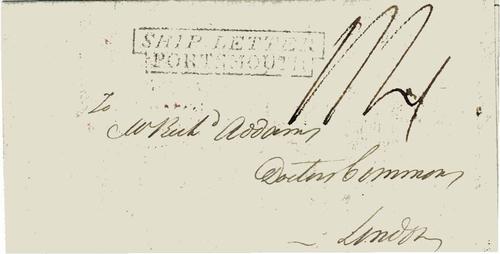 SHIP LETTER
PORTSMOUTH
To
Mr Richd Addams
Doctors Commons
London